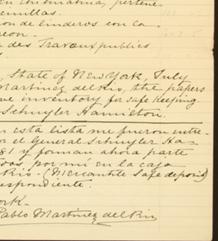 en contrariamq, pertene-
cemillas.
cion de linderos con la
deon.
des Travaux publics
, State of New York, July
Martinez del Rio, the papers
ve inventory for safe keeping
Schuyler Hamilton.
n esta lista me fueron entre-
or el General Schuyler Ha-
y forman ahora parte
dos por mi en la caja
Rio. (Mercantile Safe deposit)
respondente.
York.
Pablo Martinez del Rio